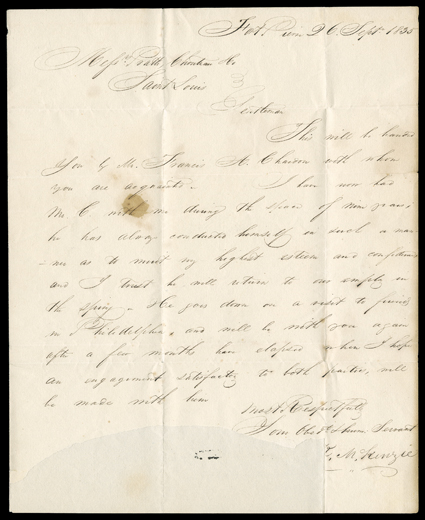 Fort Pierre 26 Septr 1835
Messrs Pratte Chouteau & Co
Saint Louis
Gentlemen
This will be handed
You by Mr. Francis A. Chardon with whom
you are acquainted. I have now had
Mr C with me during the space of nine years
he has always conducted himself in such a man
-ner as to merit my highest esteem and confidence
and I trust he will return to our employ in
the spring. He goes down on a visit to friends
in Philadelphia, and will be with you again
after a few months have elapsed when I hope
an engagement satisfactory to both parties will
be made with him
Most Respectfully
Your Obedt Humn Servant
K. McKenzie